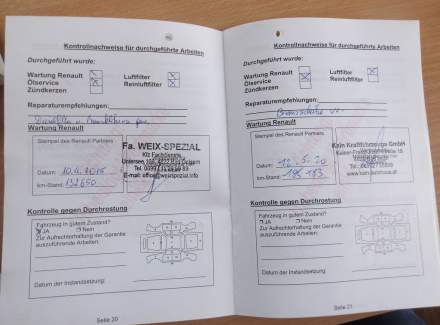 Kontrollnachweise für durchgeführte Arbeiten
Durchgeführt wurde:
Wartung Renault
Luftfilter
Ölservice
Reinluftfilter
Zündkerzen
Reparaturempfehlungen:
Wartung Renault
Stempel des Renault Partners
Fa. WEIX-SPEZIAL
Kfz Fachbetrieb
Datum: 10.4.2015
km-Stand: 132650
Kontrolle gegen Durchrostung
Fahrzeug in gutem Zustand?
JA
Nein
Zur Aufrechterhaltung der Garantie
auszuführende Arbeiten:
Datum der Instandsetzung:
Seite 20
Kontrollnachweise für durchgeführte Arbeiten
Durchgeführt wurde:
Wartung Renault
Luftfilter
Ölservice
Reinluftfilter
Zündkerzen
Reparaturempfehlungen:
Wartung Renault
Stempel des Renault Partners
GmbH
Datum: 12.5.20
km-Stand: 196 183
Kontrolle gegen Durchrostung
Fahrzeug in gutem Zustand?
JA
Nein
Zur Aufrechterhaltung der Garantie
auszuführende Arbeiten:
Datum der Instandsetzung:
Seite 21